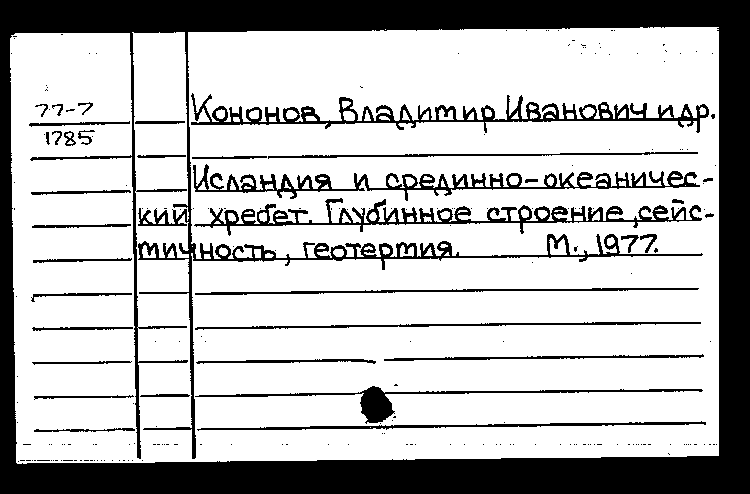 77-7
1785
Кононов, Владимир Иванович и др.
Исландия и срединно-океаничес-
кий хребет. Глубинное строение, сейс-
мичность, геотертия. М., 1977.